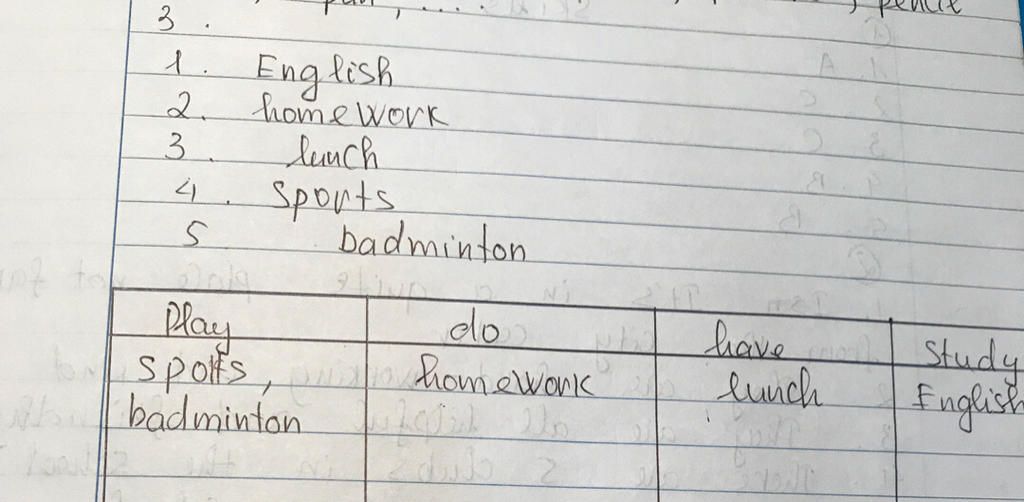 pencil
3.
1. English
2. homework
3. lunch
4. sports
5 badminton
Play do have study
sports, homework lunch English
badminton